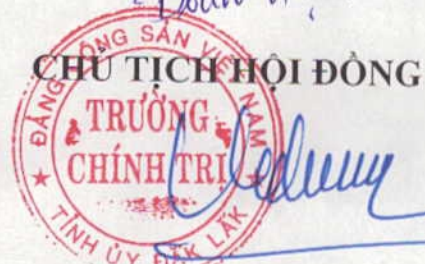 CHỦ TỊCH HỘI ĐỒNG
ĐẢNG CỘNG SẢN VIỆT NAM
TRƯỜNG
CHÍNH TRỊ
TỈNH ỦY ĐẮK LẮK